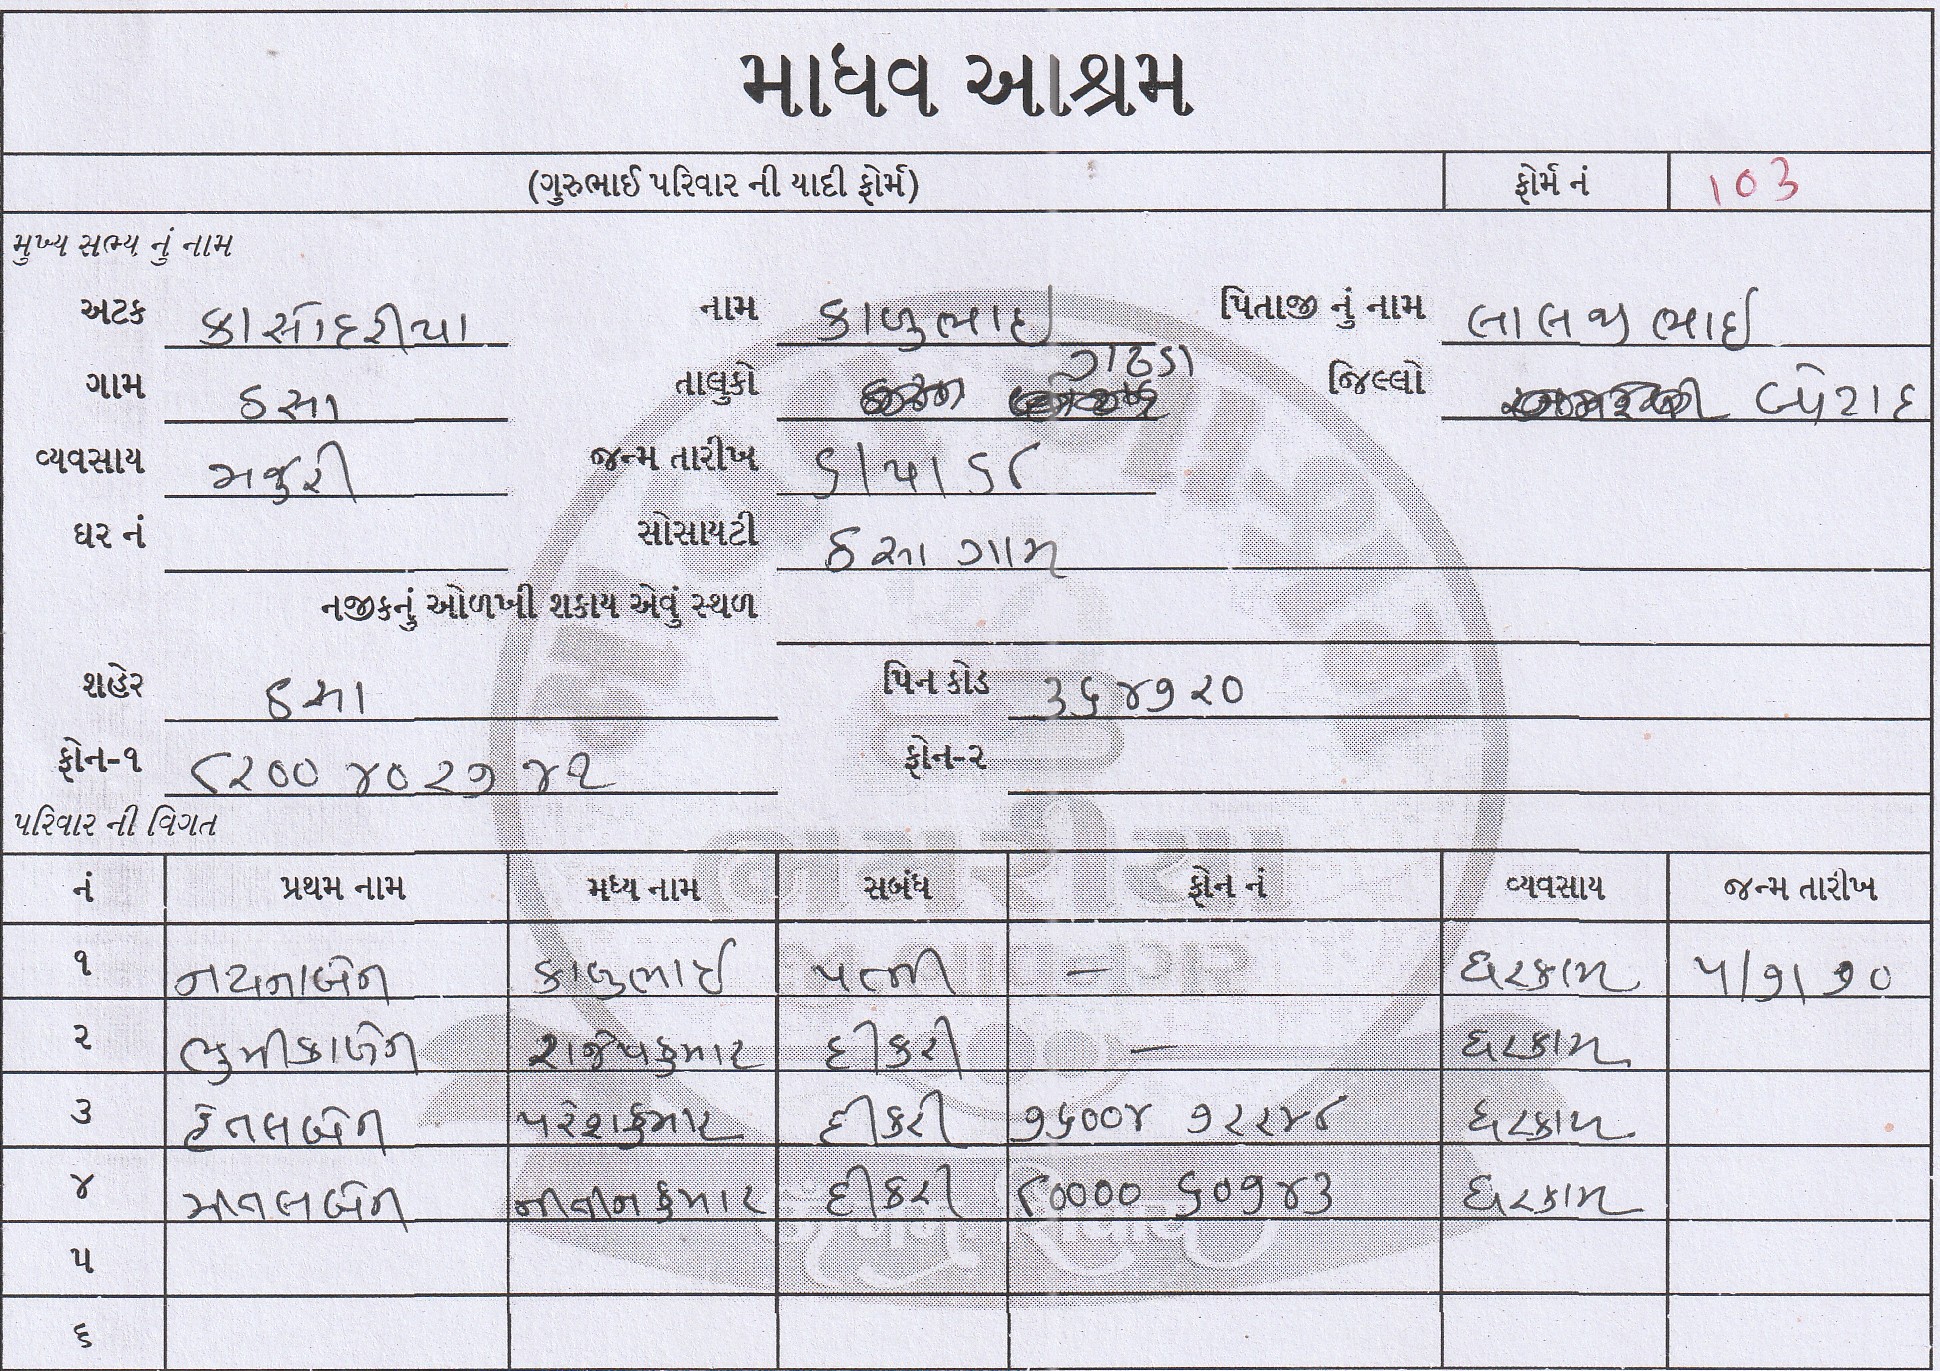 માધવ આશ્રમ
(ગુરુભાઈ પરિવાર ની યાદી ફોર્મ) ફોર્મ નં 103
મુખ્ય સભ્ય નું નામ
અટક કાસોદરીયા નામ કાળુભાઈ પિતાજી નું નામ લાલજીભાઈ
ગામ ઠસા તાલુકો ગઢડા જિલ્લો બોટાદ
વ્યવસાય મજુરી જન્મ તારીખ
ઘર નં સોસાયટી ઠસા ગામ
નજીકનું ઓળખી શકાય એવું સ્થળ
શહેર ઠસા પિન કોડ ૩૬૪૭૨૦
ફોન-૧ ૮૨૦૦ ૪૦૨૭ ૪૨ ફોન-૨
પરિવાર ની વિગત
નં પ્રથમ નામ મધ્ય નામ સબંધ ફોન નં વ્યવસાય જન્મ તારીખ
૧ નયનાબેન કાળુભાઈ પત્ની — ઘરકામ ૫/૭/૭૦
૨ ભુમીકાબેન દીકરી — ઘરકામ
૩ હેતલબેન પરેશકુમાર દીકરી ૭૬૦૦૪ ૭૨૨૪૮ ઘરકામ
૪ નીતીનકુમાર દીકરી ઘરકામ
૫
૬